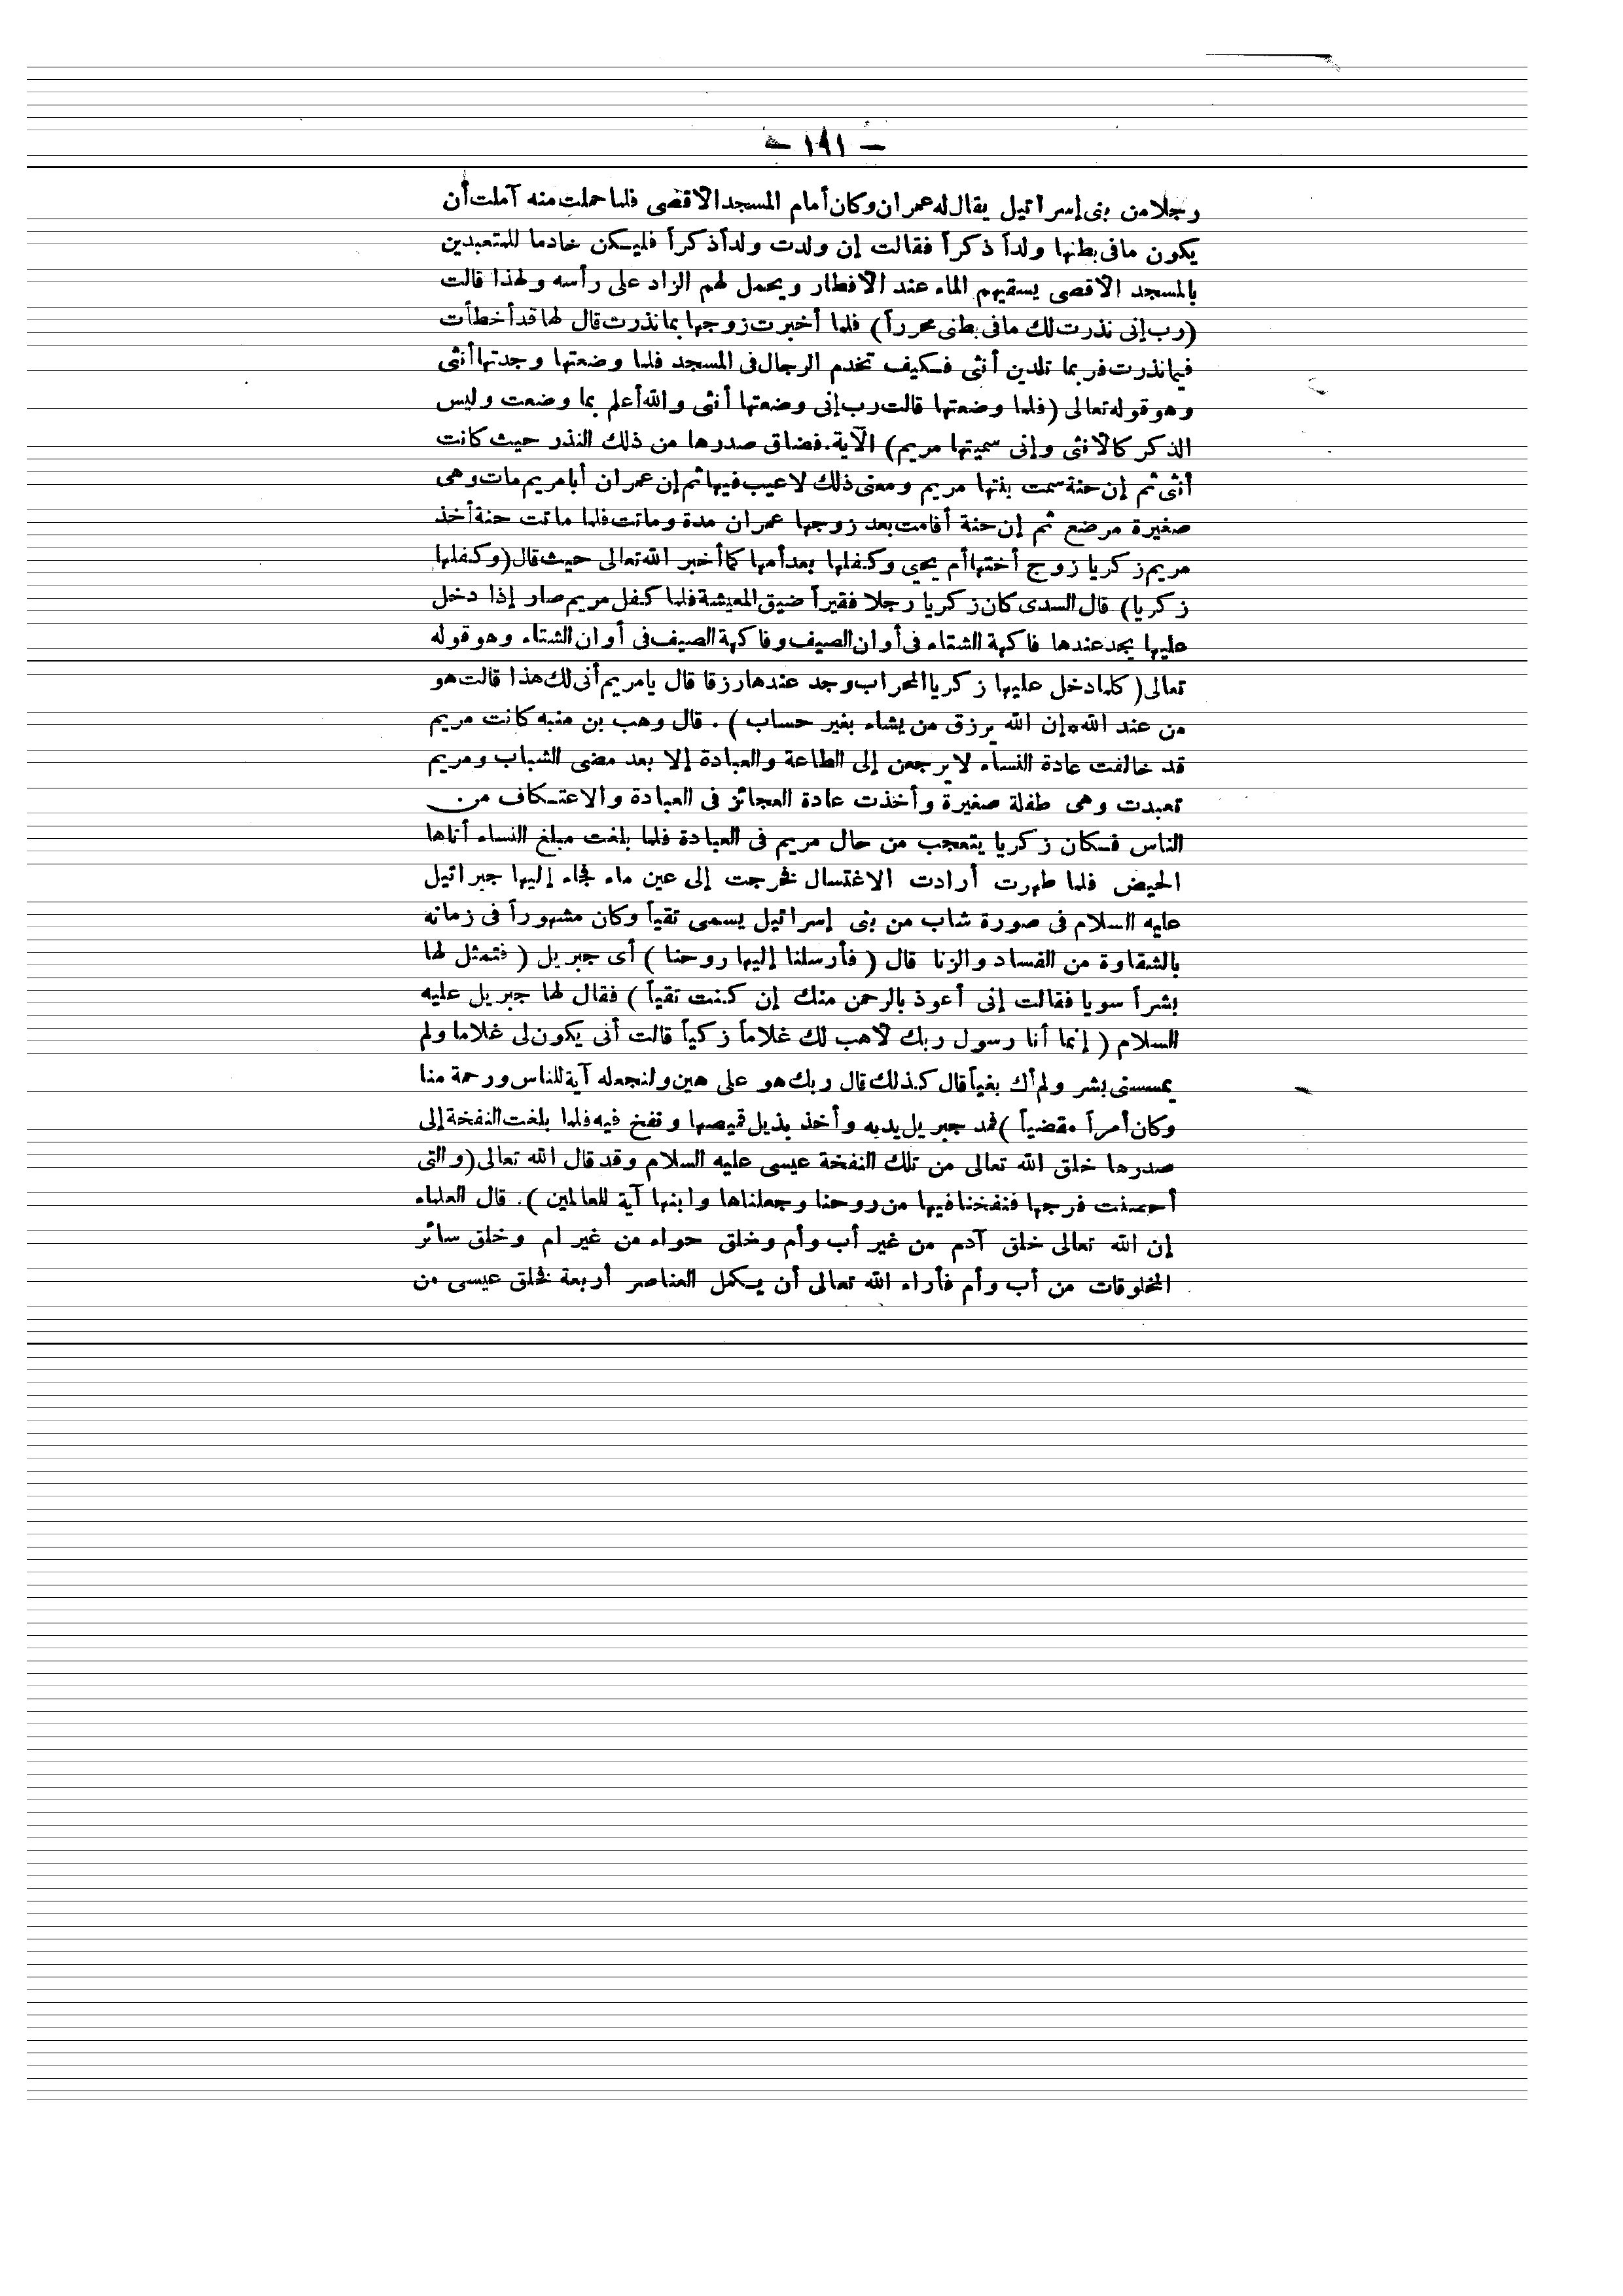 — ١٩١ —
رجلا من بنى إسرائيل يقال له عمران وكان أمام المسجد الاقصى فلما حملت منه آملت أن
يكون مافى بطنها ولداً ذكراً فقالت إن ولدت ولداً ذكراً فليكن خادما للمتعبدين
بالمسجد الاقصى يسقيهم الماء عند الافطار ويحمل لهم الزاد على رأسه ولهذا قالت
(رب إنى نذرت لك مافى بطنى محرراً) فلما أخبرت زوجها بما نذرت قال لها قد أخطأت
فيما نذرت فربما تلدين أنثى فكيف تخدم الرجال فى المسجد فلما وضعتها وجدتها أنثى
وهو قوله تعالى (فلما وضعتها قالت رب إنى وضعتها أنثى والله أعلم بما وضعت وليس
الذكر كالانثى وإنى سميتها مريم) الآية. فضاق صدرها من ذلك النذر حيث كانت
أنثى ثم إن حنة سمت بنتها مريم ومعنى ذلك لاعيب فيها ثم إن عمران أبا مريم مات وهى
صغيرة مرضع ثم إن حنة أقامت بعد زوجها عمران مدة وماتت فلما ماتت حنة أخذ
مريم زكريا زوج أختها أم يحيى وكفلها بعد أمها كما أخبر الله تعالى حيث قال (وكفلها
زكريا) قال السدى كان زكريا رجلا فقيراً ضيق المعيشة فلما كفل مريم صار إذا دخل
عليها يجد عندها فاكهة الشتاء فى أوان الصيف وفاكهة الصيف فى أوان الشتاء وهو قوله
تعالى (كلما دخل عليها زكريا المحراب وجد عندها رزقا قال يامريم أنى لك هذا قالت هو
من عند الله إن الله يرزق من يشاء بغير حساب). قال وهب بن منبه كانت مريم
قد خالفت عادة النساء لايرجعن إلى الطاعة والعبادة إلا بعد مضى الشباب ومريم
تعبدت وهى طفلة صغيرة وأخذت عادة العجائز فى العبادة والاعتكاف من
الناس فكان زكريا يتعجب من حال مريم فى العبادة فلما بلغت مبلغ النساء أتاها
الحيض فلما طهرت أرادت الاغتسال فخرجت إلى عين ماء فجاء إليها جبرائيل
عليه السلام فى صورة شاب من بنى إسرائيل يسمى تقياً وكان مشهوراً فى زمانه
بالشقاوة من الفساد والزنا قال ( فأرسلنا إليها روحنا ) أى جبريل ( فتمثل لها
بشراً سويا فقالت إنى أعوذ بالرحمن منك إن كنت تقياً ) فقال لها جبريل عليه
السلام ( إنما أنا رسول ربك لاهب لك غلاماً زكياً قالت أنى يكون لى غلاما ولم
يمسسنى بشر ولم أك بغياً قال كذلك قال ربك هو على هين ولنجعله آية للناس ورحمة منا
وكان أمراً مقضياً ) فمد جبريل يديه وأخذ بذيل قميصها ونفخ فيه فلما بلغت النفخة إلى
صدرها خلق الله تعالى من تلك النفخة عيسى عليه السلام وقد قال الله تعالى (والتى
أحصنت فرجها فنفخنا فيها من روحنا وجعلناها وابنها آية للعالمين ). قال العلماء
إن الله تعالى خلق آدم من غير أب وأم وخلق حواء من غير ام وخلق سائر
المخلوقات من أب وأم فأراء الله تعالى أن يكمل العناصر أربعة فخلق عيسى من